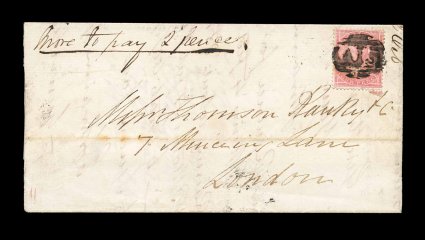 More to pay 2 pence
Messrs Thomson Hankey & C
7 Mincing Lane
London